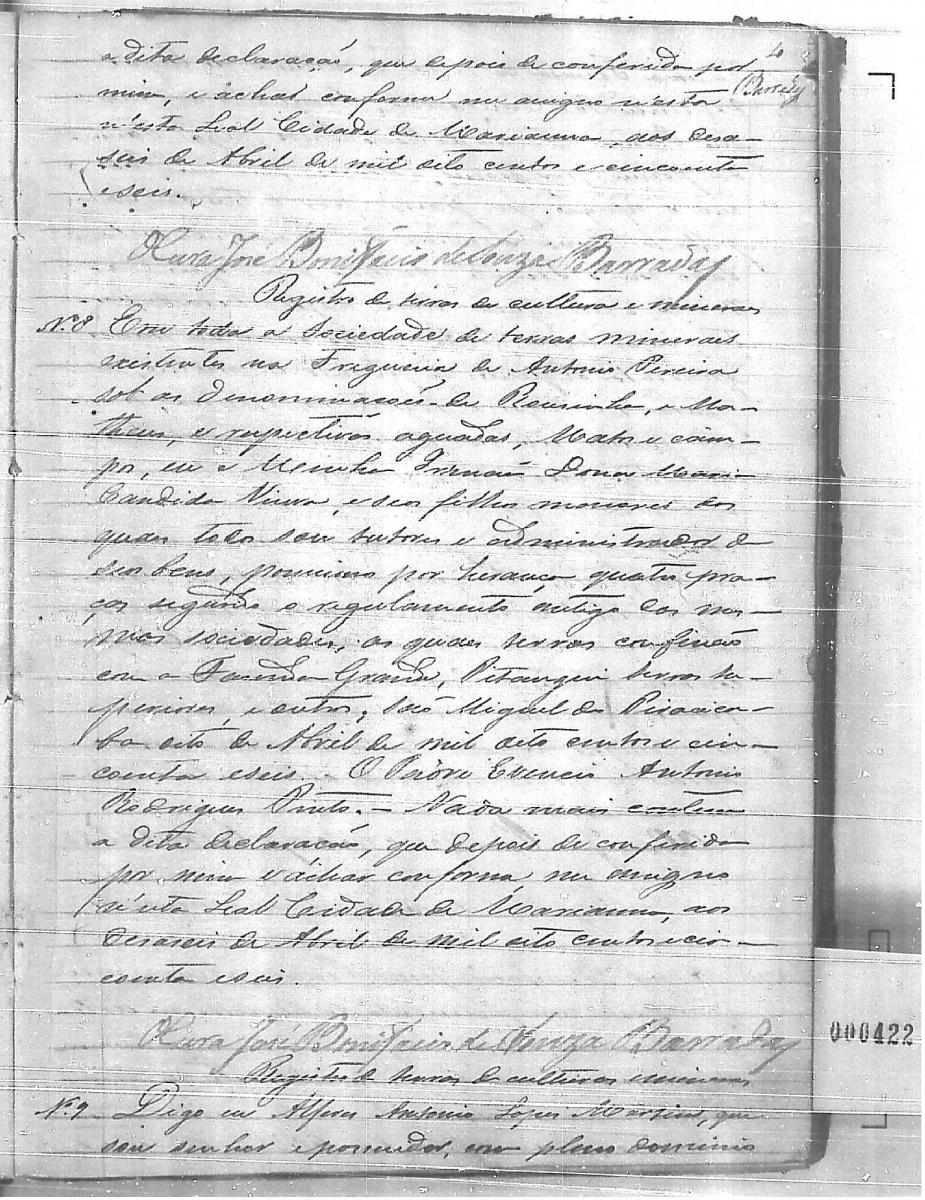 4
Barradas
a dita declaração, que depois de conferida por
mim, e áchar conforme me assigno n'esta
n'esta Leal Cidade de Marianna, aos desa-
seis de Abril de mil oito centos e cincoenta
e seis.
José Bonifacio de Souza Barradas
Registro de terras de cultura e mineraes
N.º 8 Em toda a Sociedade de terras mineraes
existentes na Freguezia de Antonio Pereira
sob as denominações de e Ma-
theus, e respectivas aguadas, Mato e cam-
po, eu e Minha Irmaã Dona Maria
Candida e seos filhos menores dos
quaes todos sou tutor e administrador de
seos bens, possuimos por herança quatro pra-
ças segundo o regulamento antigo das mes-
mas sociedades, as quaes terras confinão
com a Fazenda Grande, Pitangui terras su-
periores, e outros, São Miguel do Piracica-
ba oito de Abril de mil oito centos e cin-
coenta e seis. - O Padre Antonio
Rodrigues Pinto. - Nada mais contem
a dita declaração, que depois de conferida
por mim e áchar conforme me assigno
n'esta Leal Cidade de Marianna, aos
desaseis de Abril de mil oito centos e cin-
coenta e seis.
José Bonifacio de Souza Barradas
Registro de terras de culturas e mineraes
N.º 9 Digo eu Alferes Antonio Lopes Martins, que
sou senhor e possuidor, com pleno dominio
000422